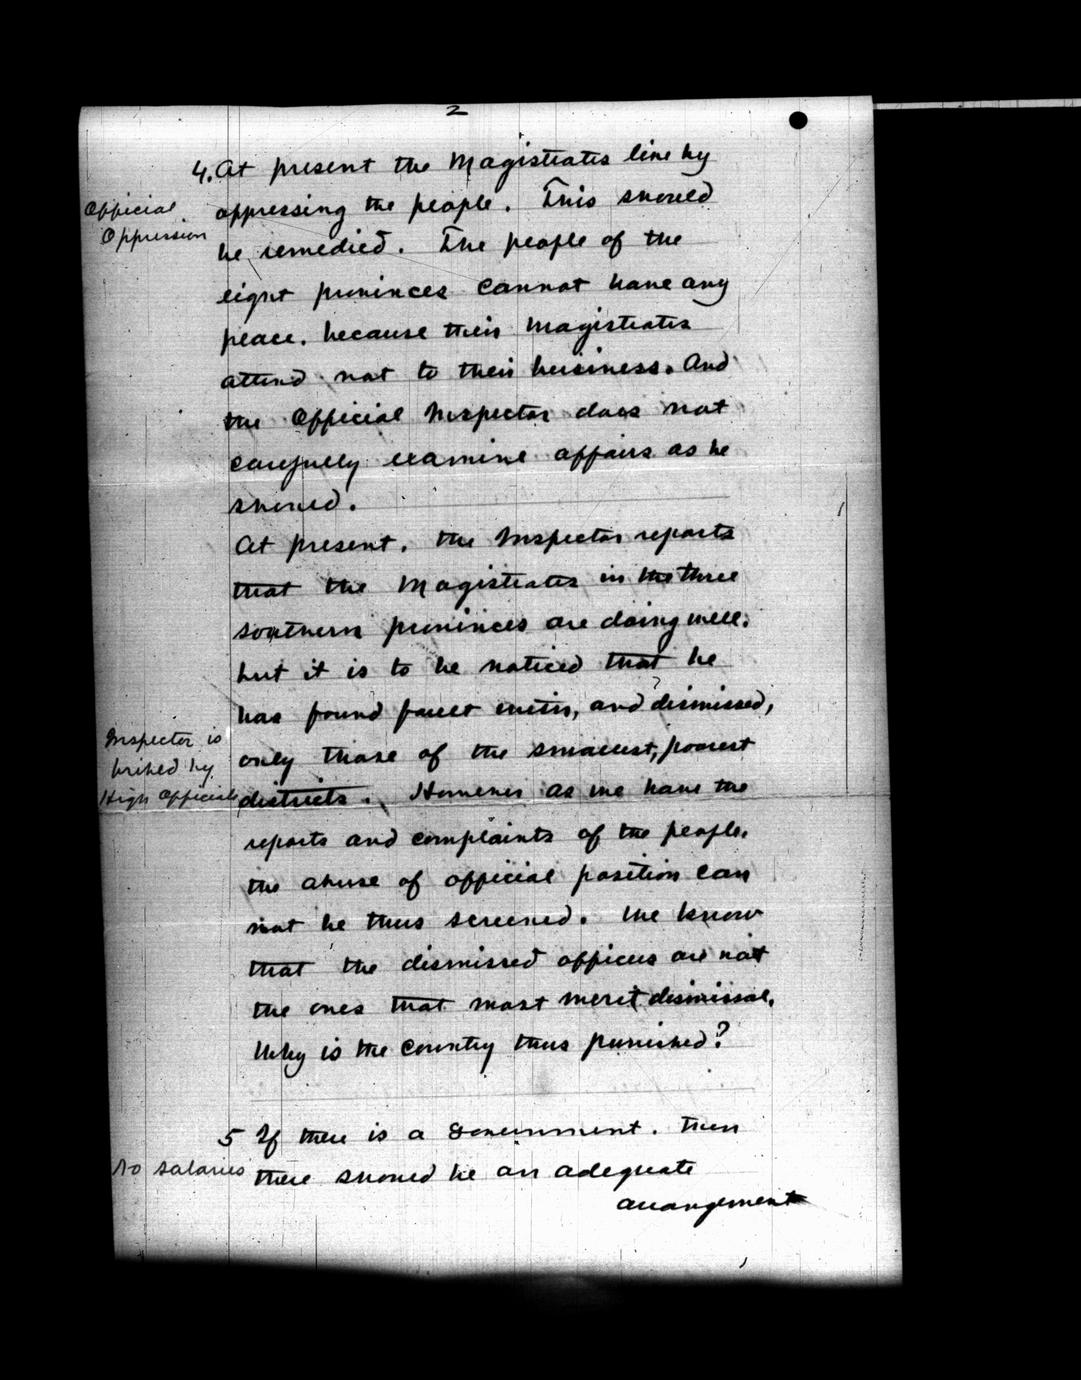 2
4. At present the Magistrates live by
Official
Oppression
oppressing the people. This should
be remedied. The people of the
eight provinces cannot have any
peace, because their Magistrates
attend not to their business. And
the Official Inspector does not
carefully examine affairs as he
should.
At present, the Inspector reports
that the Magistrates in the three
southern provinces are doing well.
but it is to be noticed that he
has found fault with, and dismissed,
Inspector is
bribed by
High Officials
only those of the smallest, poorest
districts. However as we have the
reports and complaints of the people,
the abuse of official position can
not be thus screened. We know
that the dismissed officers are not
the ones that most merit dismissal.
Why is the country thus punished?
5 If there is a Government, then
No Salaries
there should be an adequate
arrangement